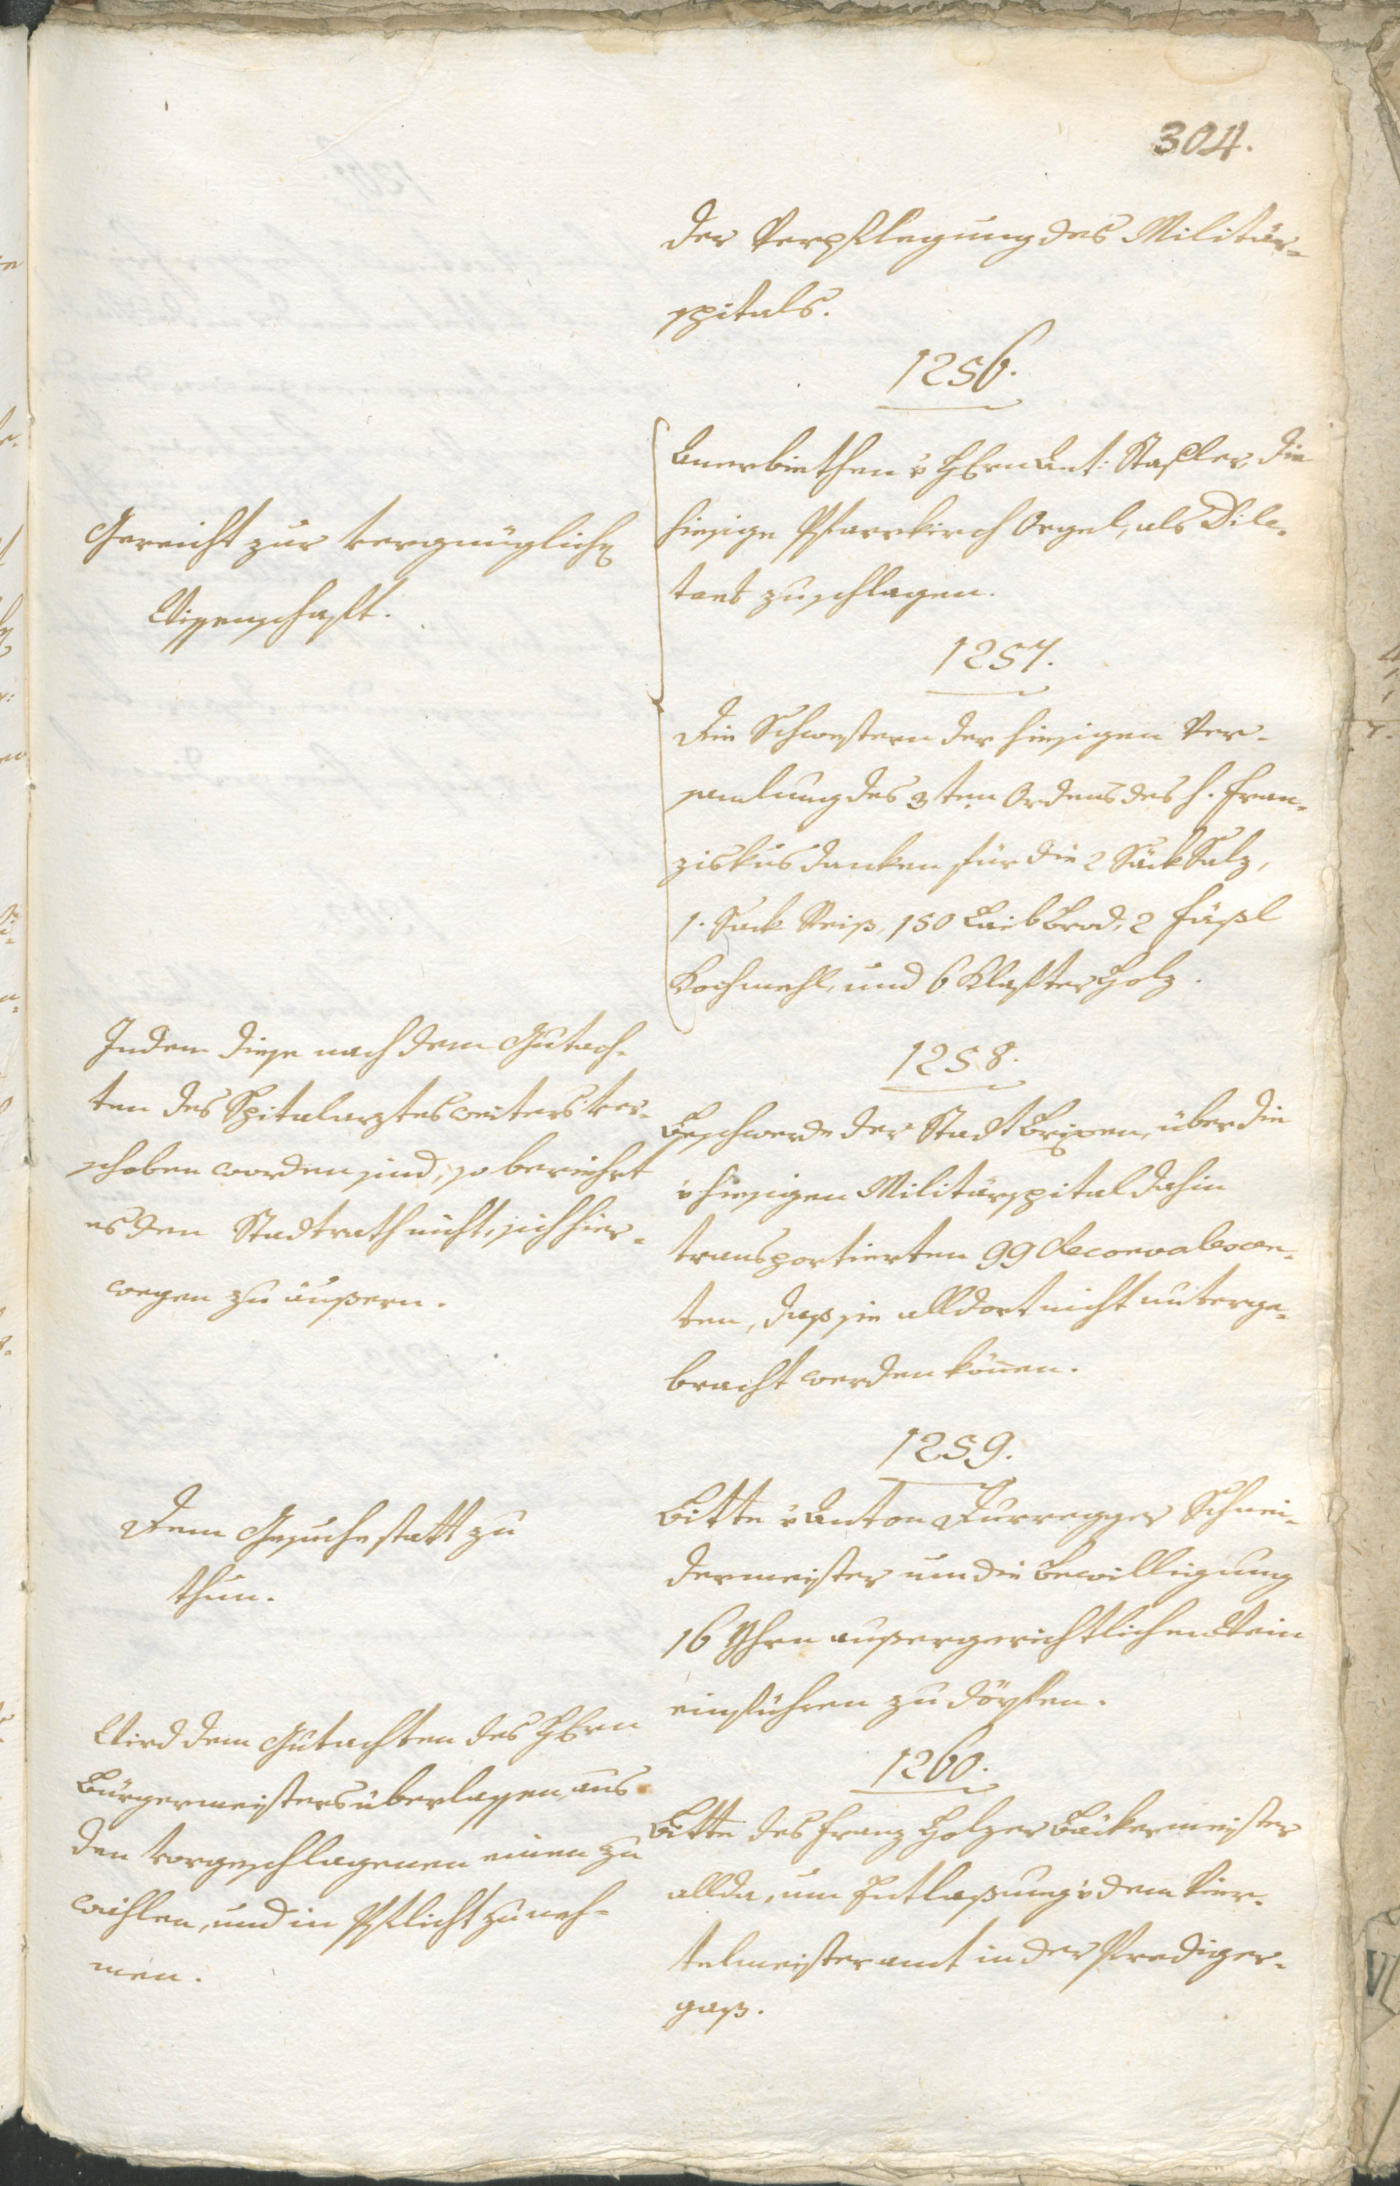 304.
der Verpflegung des Militär-
spitals.
1256.
Anerbiethen v HErn Ant: Stafler, die
hiesige Pfarrkirch Orgel, als Dile-
tant zuschlagen.
Gereicht zur vergnüglichen
Wissenschaft.
1257.
Die Schwestern der hiesigen Ver-
samlung des 3ten Ordens des h. Fran-
ziskus danken für die 2 Säck Salz,
1. Sack Reiß, 150 Laib Brod, 2 Fäßl
Kochmehl, und 6 Klafter Holz.
1258.
Beschwerde der Stadt Brixen, über die
v hiesigen Militärspital dahin
transportierten 99 Reconvalescen-
ten, daß sie alldort nicht unterge-
bracht werden können.
Indem diese nach dem Gutach-
ten des Spitalarztes weiters ver-
schoben worden sind, so berührt
es den Stadtrath nicht, sich hier-
wegen zu äußern.
1259.
Bitte v Anton Durregger Schnei-
dermeister um die Bewilligung
16 Yhrn außergerichtlichen Wein
einführen zu dörfen.
Dem Gesuche statt zu
thun.
1260.
Bitte des Franz Holzer Bäkermeister
allda, um Entlaßung v dem Vier-
telmeisteramt in der Prediger-
gaß.
Wird dem Gutachten des HErn
Bürgermeisters überlassen, aus
den vorgeschlagenen einen zu
wählen, und in Pflicht zu neh-
men.